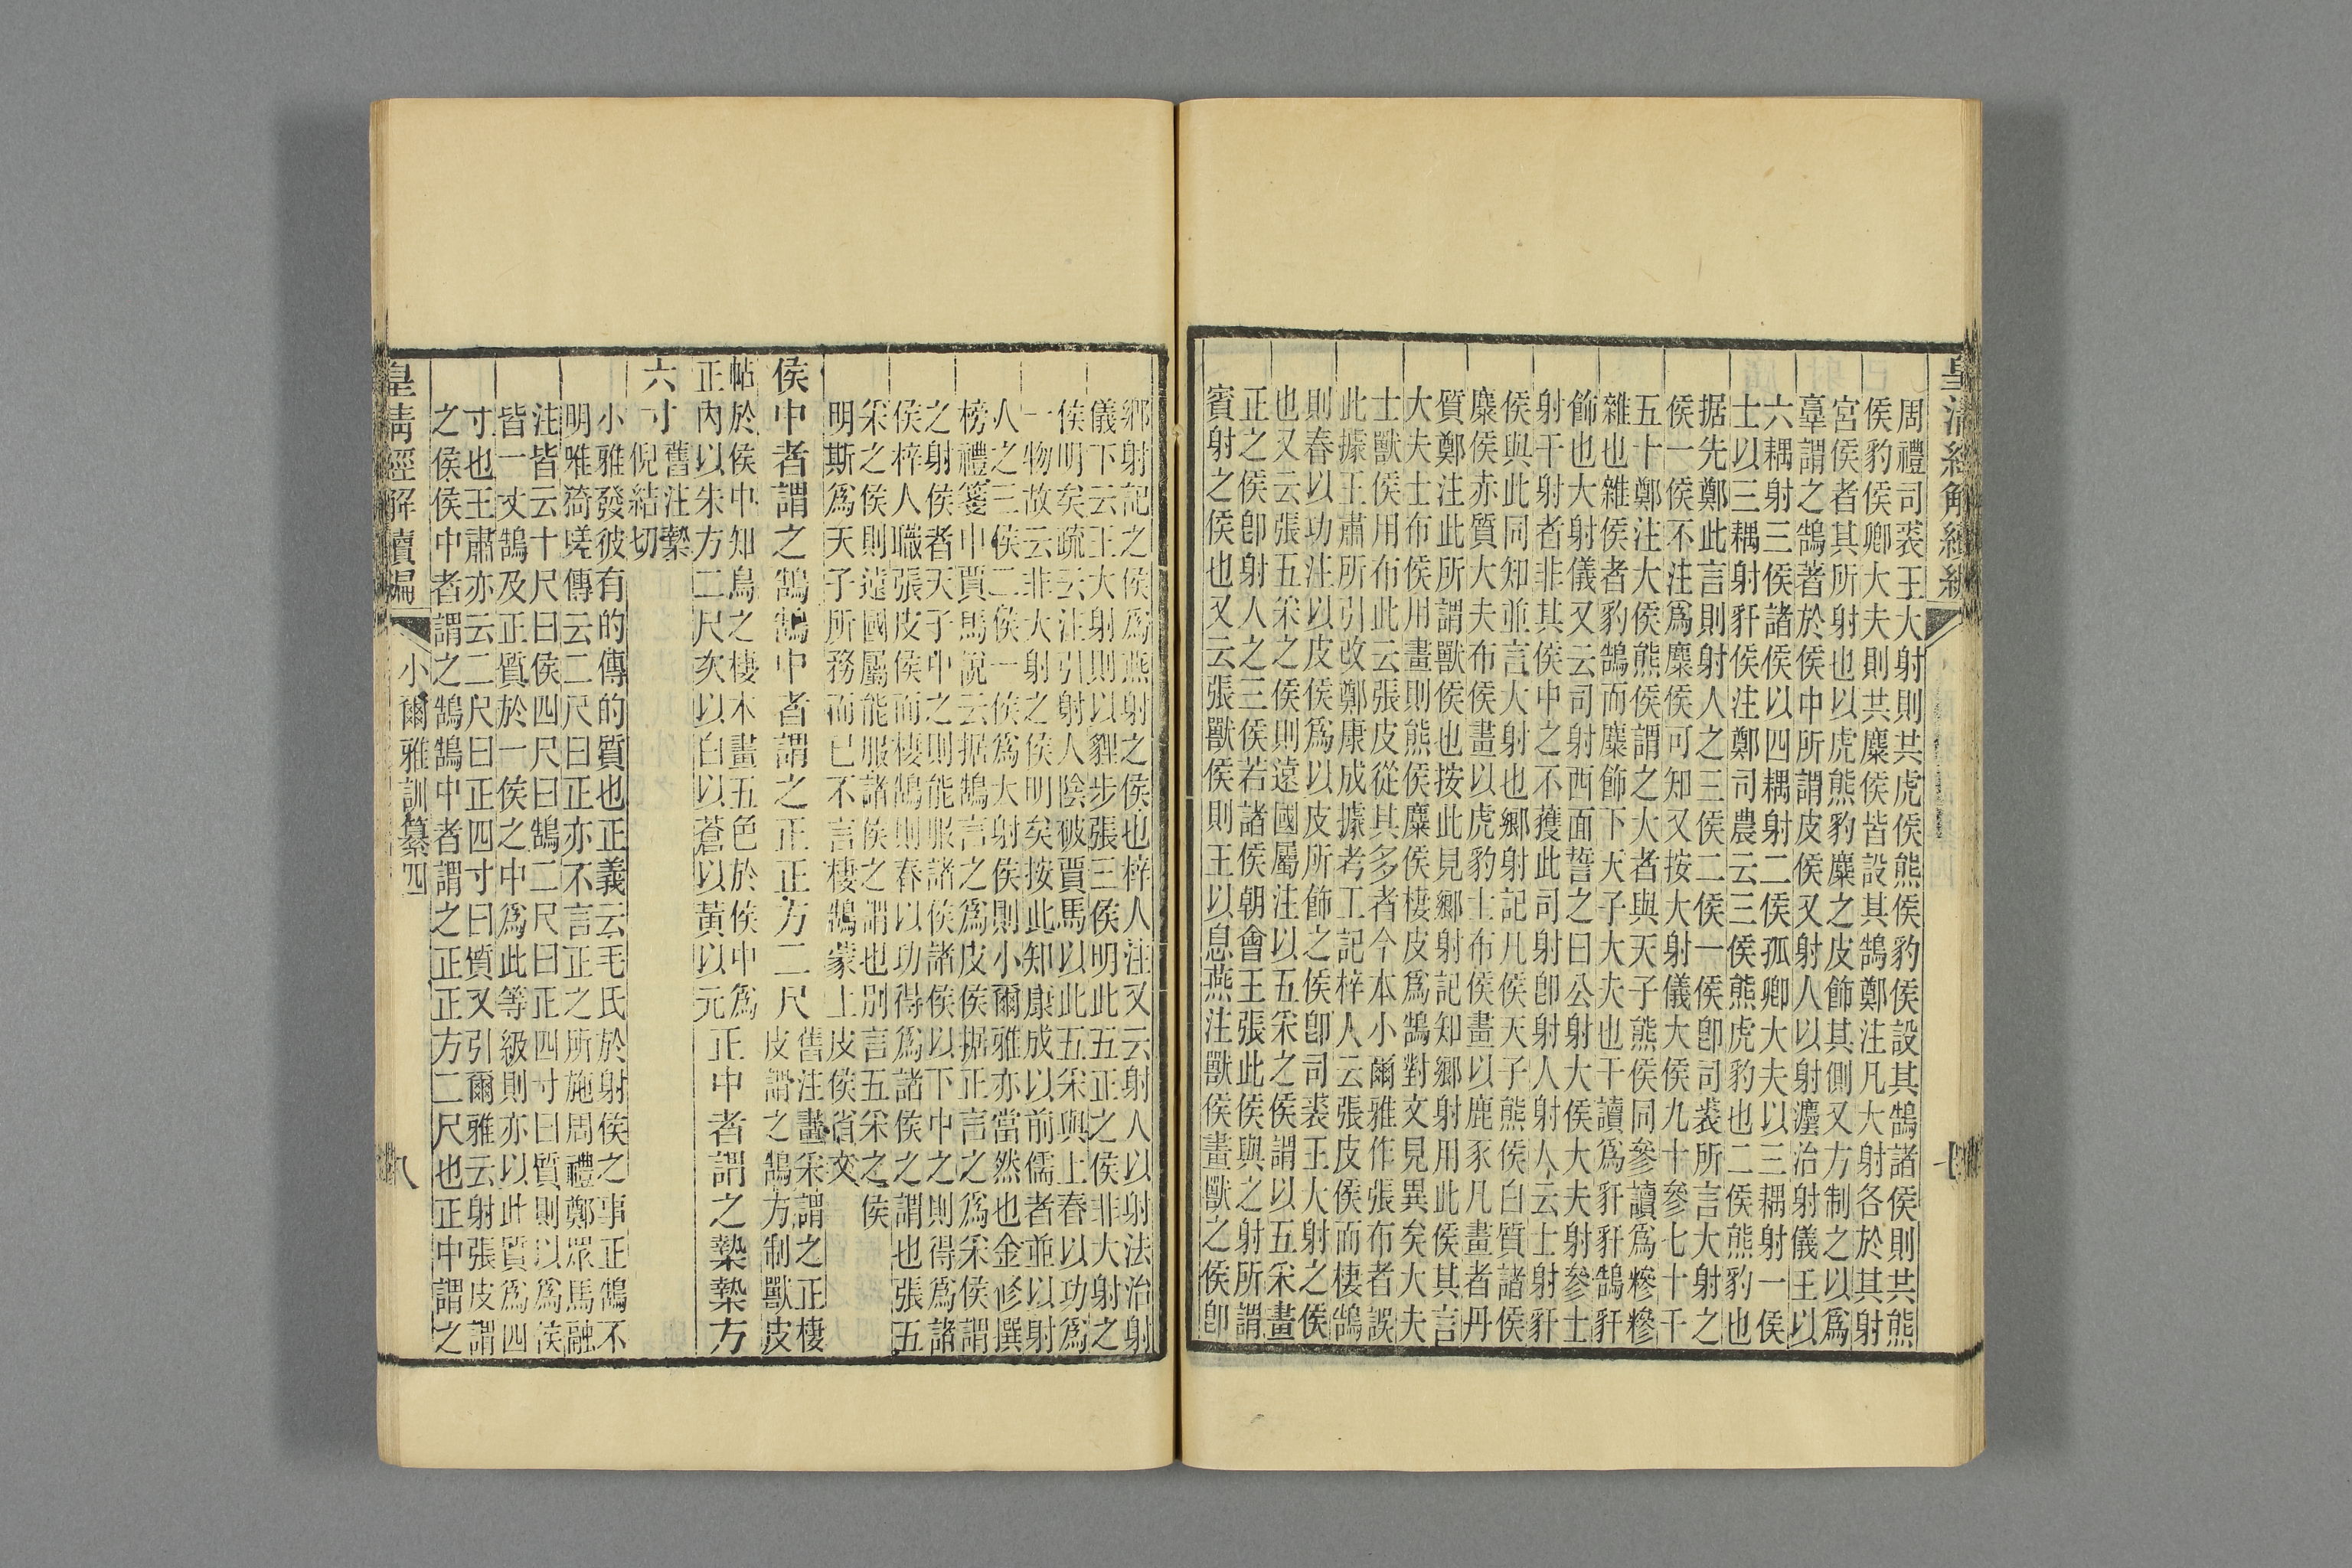 皇清經解續編
周禮司裘王大射則共虎侯熊侯豹侯設其鵠諸侯則共熊
侯豹侯卿大夫則共麋侯皆設其鵠鄭注凡大射各於其射
宮侯者其所射也以虎熊豹麋之皮飾其側又方制之以爲
𦎧謂之鵠著於侯中所謂皮侯又射人以射灋治射儀王以
六耦射三侯諸侯以四耦射二侯孤卿大夫以三耦射一侯
士以三耦射豻侯注鄭司農云三侯熊虎豹也二侯熊豹也
据先鄭此言則射人之三侯二侯一侯卽司裘所言大射之
侯一侯不注爲麋侯可知又按大射儀大侯九十參七十干
五十鄭注大侯熊侯謂之大者與天子熊侯同參讀爲糝糝
雜也雜侯者豹鵠而麋飾下天子大夫也干讀爲豻豻鵠豻
飾也大射儀又云司射西面誓之曰公射大侯大夫射參士
射干射者非其侯中之不獲此司射卽射人射人云士射豻
侯與此同知並言大射也鄉射記凡侯天子熊侯白質諸侯
麋侯赤質大夫布侯畫以虎豹士布侯畫以鹿豕凡畫者丹
質鄭注此所謂獸侯也按此見鄉射記知鄉射用此侯其言
大夫士布侯用畫則熊侯麋侯棲皮爲鵠對文見異矣大夫
士獸侯用布此云張皮從其多者今本小爾雅作張布者誤
此據王肅所引改鄭康成據考工記梓人云張皮侯而棲鵠
則春以功注以皮侯爲以皮所飾之侯卽司裘王大射之侯
也又云張五采之侯則遠國屬注以五采之侯謂以五采畫
正之侯卽射人之三侯若諸侯朝會王張此侯與之射所謂
賓射之侯也又云張獸侯則王以息燕注獸侯畫獸之侯卽
鄉射記之侯爲燕射之侯也梓人注又云射人以射法治射
儀下云王大射則以貍步張三侯明此五正之侯非大射之
侯明矣疏云注引射人陰破賈馬以此五采與上春以功爲
一物故云非大射之侯明矣按此知康成以前儒者並以射
人之三侯二侯一侯爲大射侯則小爾雅亦當然也金修撰
榜禮箋申賈馬說云据鵠言之爲皮侯据正言之爲采侯謂
之射侯者天子中之則能服諸侯諸侯以下中之則得爲諸
侯梓人職張皮侯而棲鵠則春以功得爲諸侯之謂也張五
采之侯則遠國屬能服諸侯之謂也別言五采之侯
明斯爲天子所務而已不言棲鵠蒙上皮侯省文
侯中者謂之鵠鵠中者謂之正正方二尺舊注畫采謂之正棲
皮謂之鵠方制獸皮
帖於侯中知鳥之棲木畫五色於侯中爲
正內以朱方二尺亥以白以蒼以黃以元正中者謂之槷槷方
六寸舊注槷
倪結切
小雅發彼有的傳的質也正義云毛氏於射侯之事正鵠不
明唯猗嗟傳云二尺曰正亦不言正之所施周禮鄭眾馬融
注皆云十尺曰侯四尺曰鵠二尺曰正四寸曰質則以爲侯
皆一丈鵠及正質於一侯之中爲此等級則亦以此質爲四
寸也王肅亦云二尺曰正四寸曰質又引爾雅云射張皮謂
之侯侯中者謂之鵠鵠中者謂之正正方二尺也正中謂之
皇清經解續編
小爾雅訓纂四
八